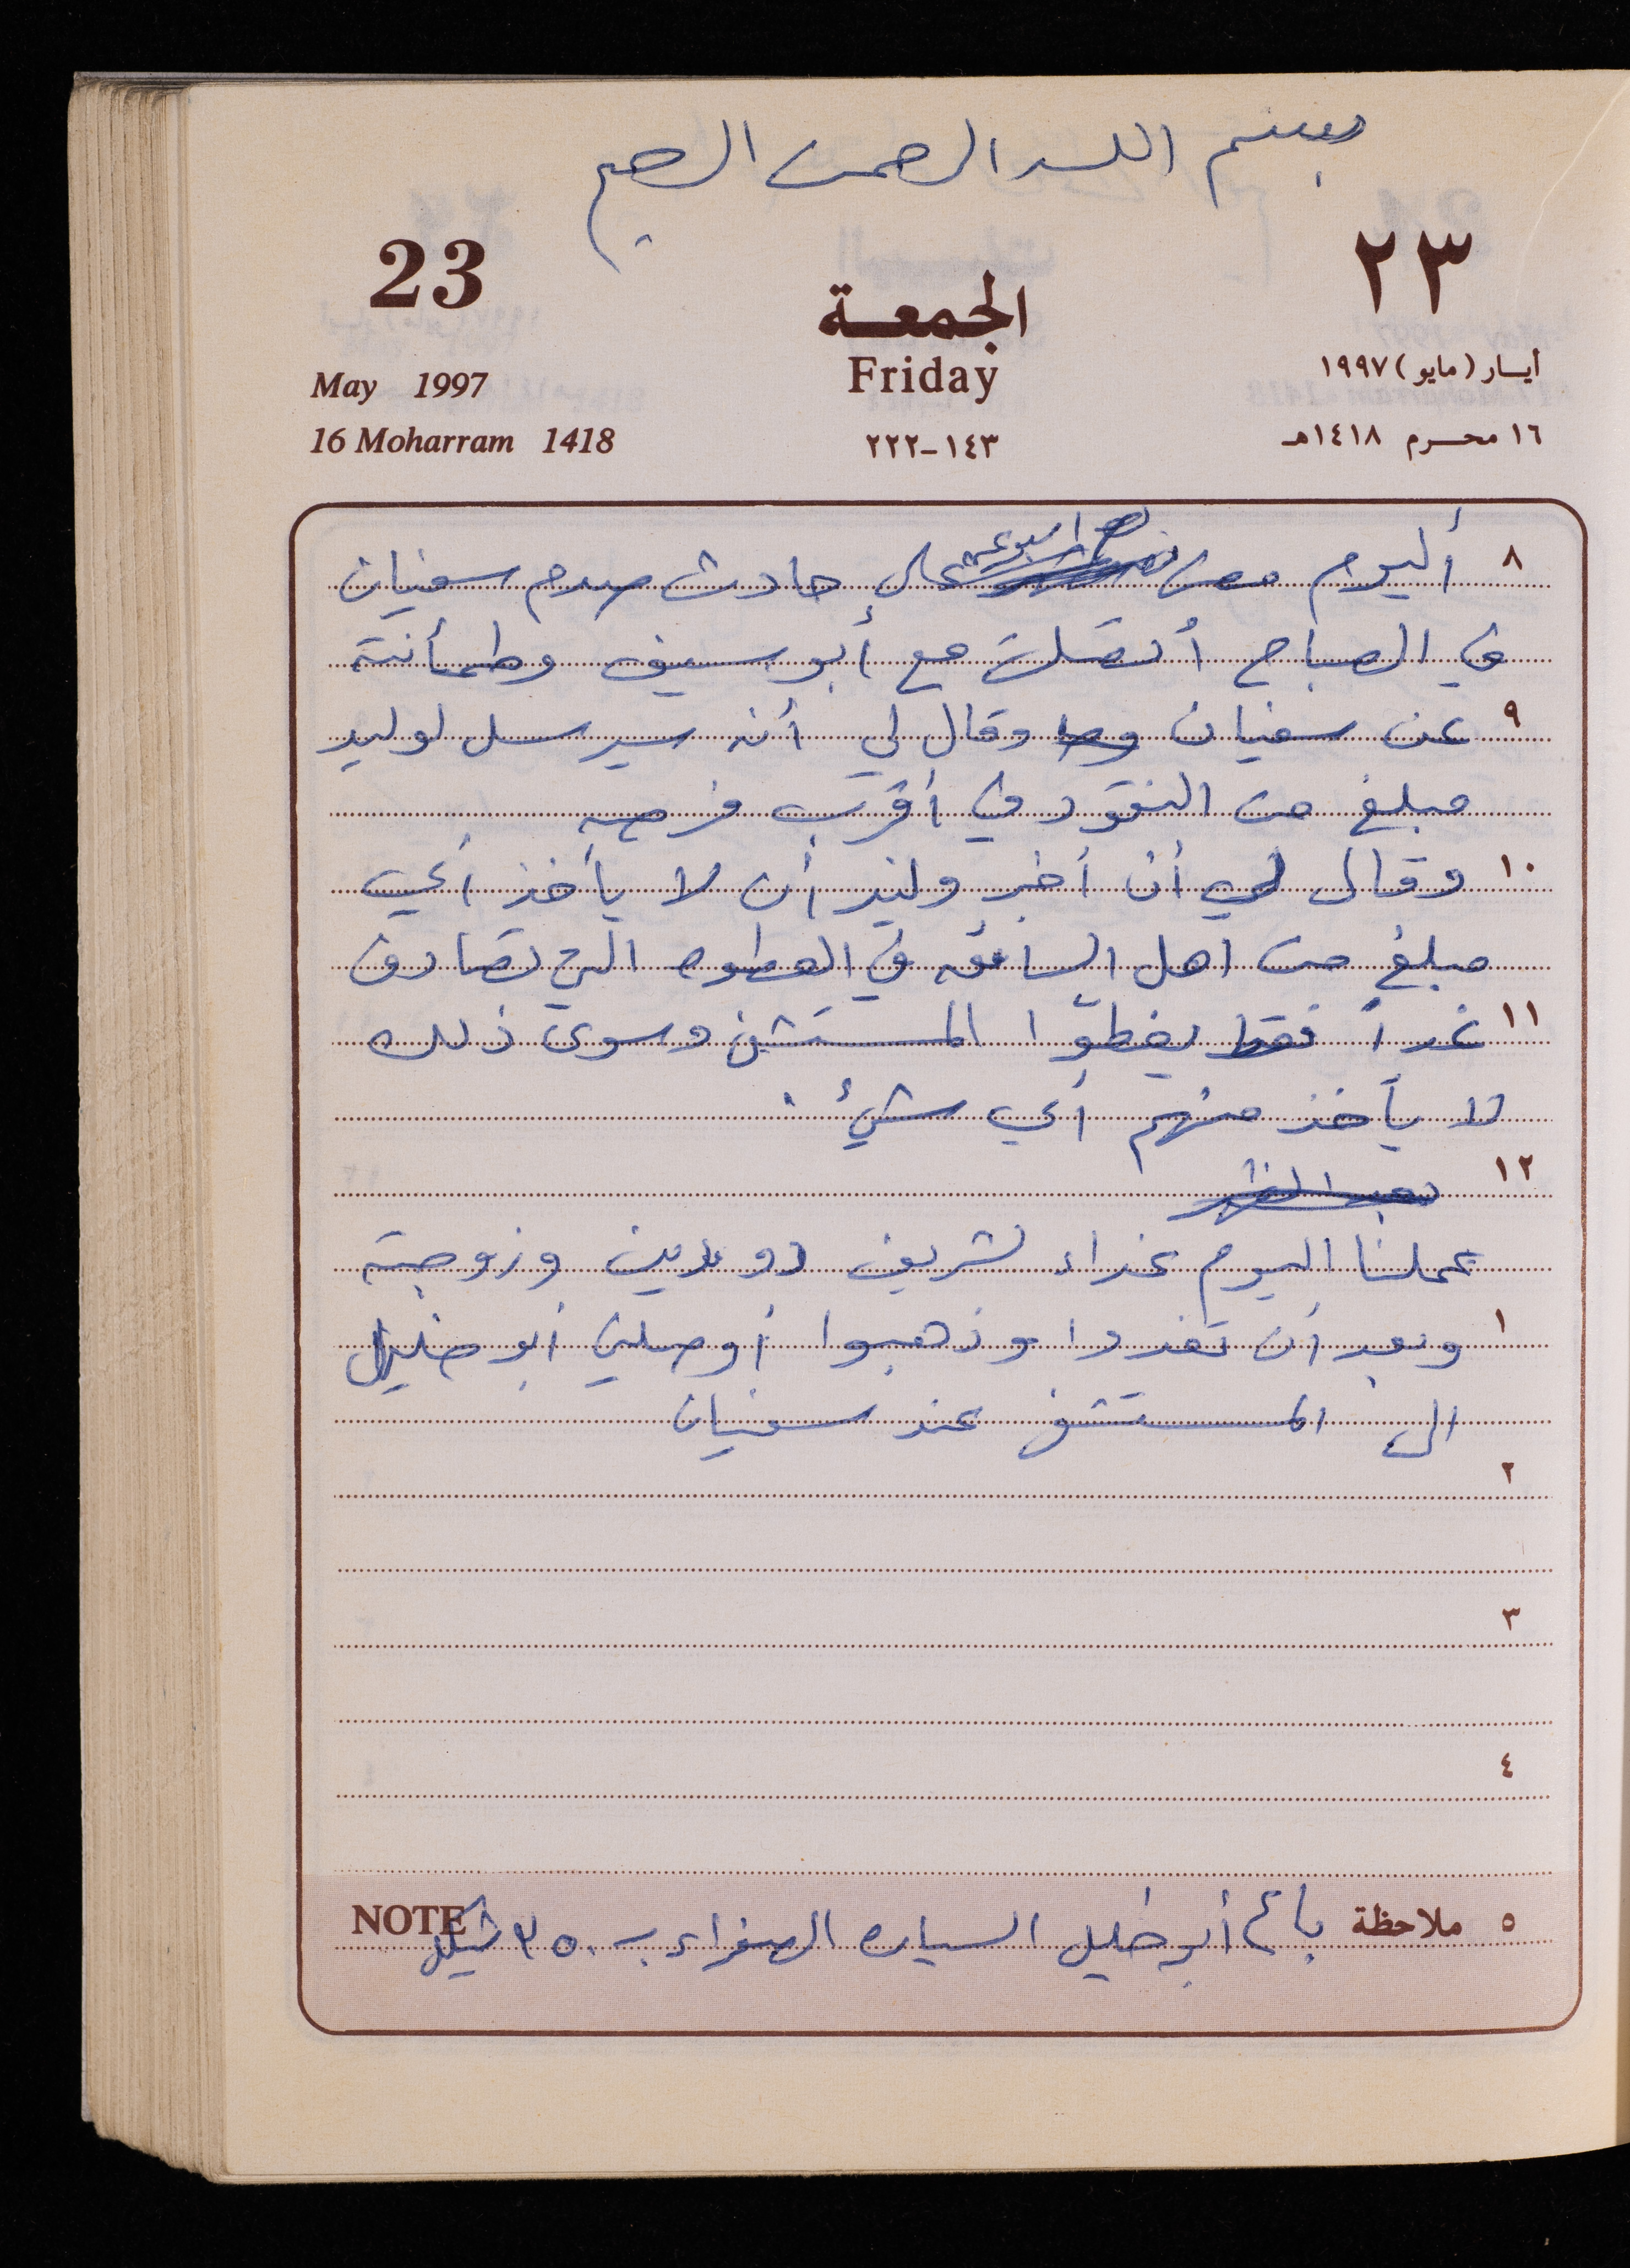 بسم الله الرحمن الرحيم
23
٢٣
الجمعة
Friday
May 1997
أيار (مايو) ١٩٩٧
16 Moharram 1418
١٤٣-٢٢٢
١٦ محرم ١٤١٨هـ
٨ أليوم مضى اسبوعين على حادث صدم سفيان
في الصباح أتصلت مع أبو سيف وطمأنته
٩ عن سفيان وقال لي أنه سيرسل لوليد
مبلغ من النقود في أقرب فرصه
١٠ وقال لي أن أخبر وليد أن لا يأخذ أي
مبلغ من اهل السائقه في العطوه التي تصادف
١١ غداً فقط يغطوا المستشفى وسوى ذلك
لا يأخذ منهم أي شيء .
١٢ بعد الظهر
عملنا اليوم غداء لشريف وزوجته
١ وبعد أن تغدوا وذهبوا أوصلني أبو خليل
الى المستشفى عند سفيان
٢
٣
٤
٥ ملاحظة باع أبو خليل السياره الصفراء ب ٣٥٠٠ شيكل
NOTE